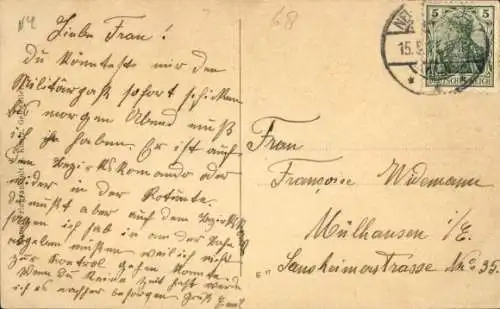 68
Liebe Frau!
Du könntest mir den
Militärpaß sofort schicken
bis morgen Abend muß
ich ihn haben. Er ist auch
dem Bezirkskomando oder
wider in der
Du mußt aber auch dem Bezirksk
sagen ich hab in an der Bahn
abgeben müssen weil ich nicht
zur Kontrol gehen konnte
Wenn du keine Zeit hast werde
ich es nachher besorgen Gruß
NE
15.5
5 5
DEUTSCHES REICH
Frau
Françoise Widemann
Mülhausen i/E.
Sausheimerstrasse No 35.